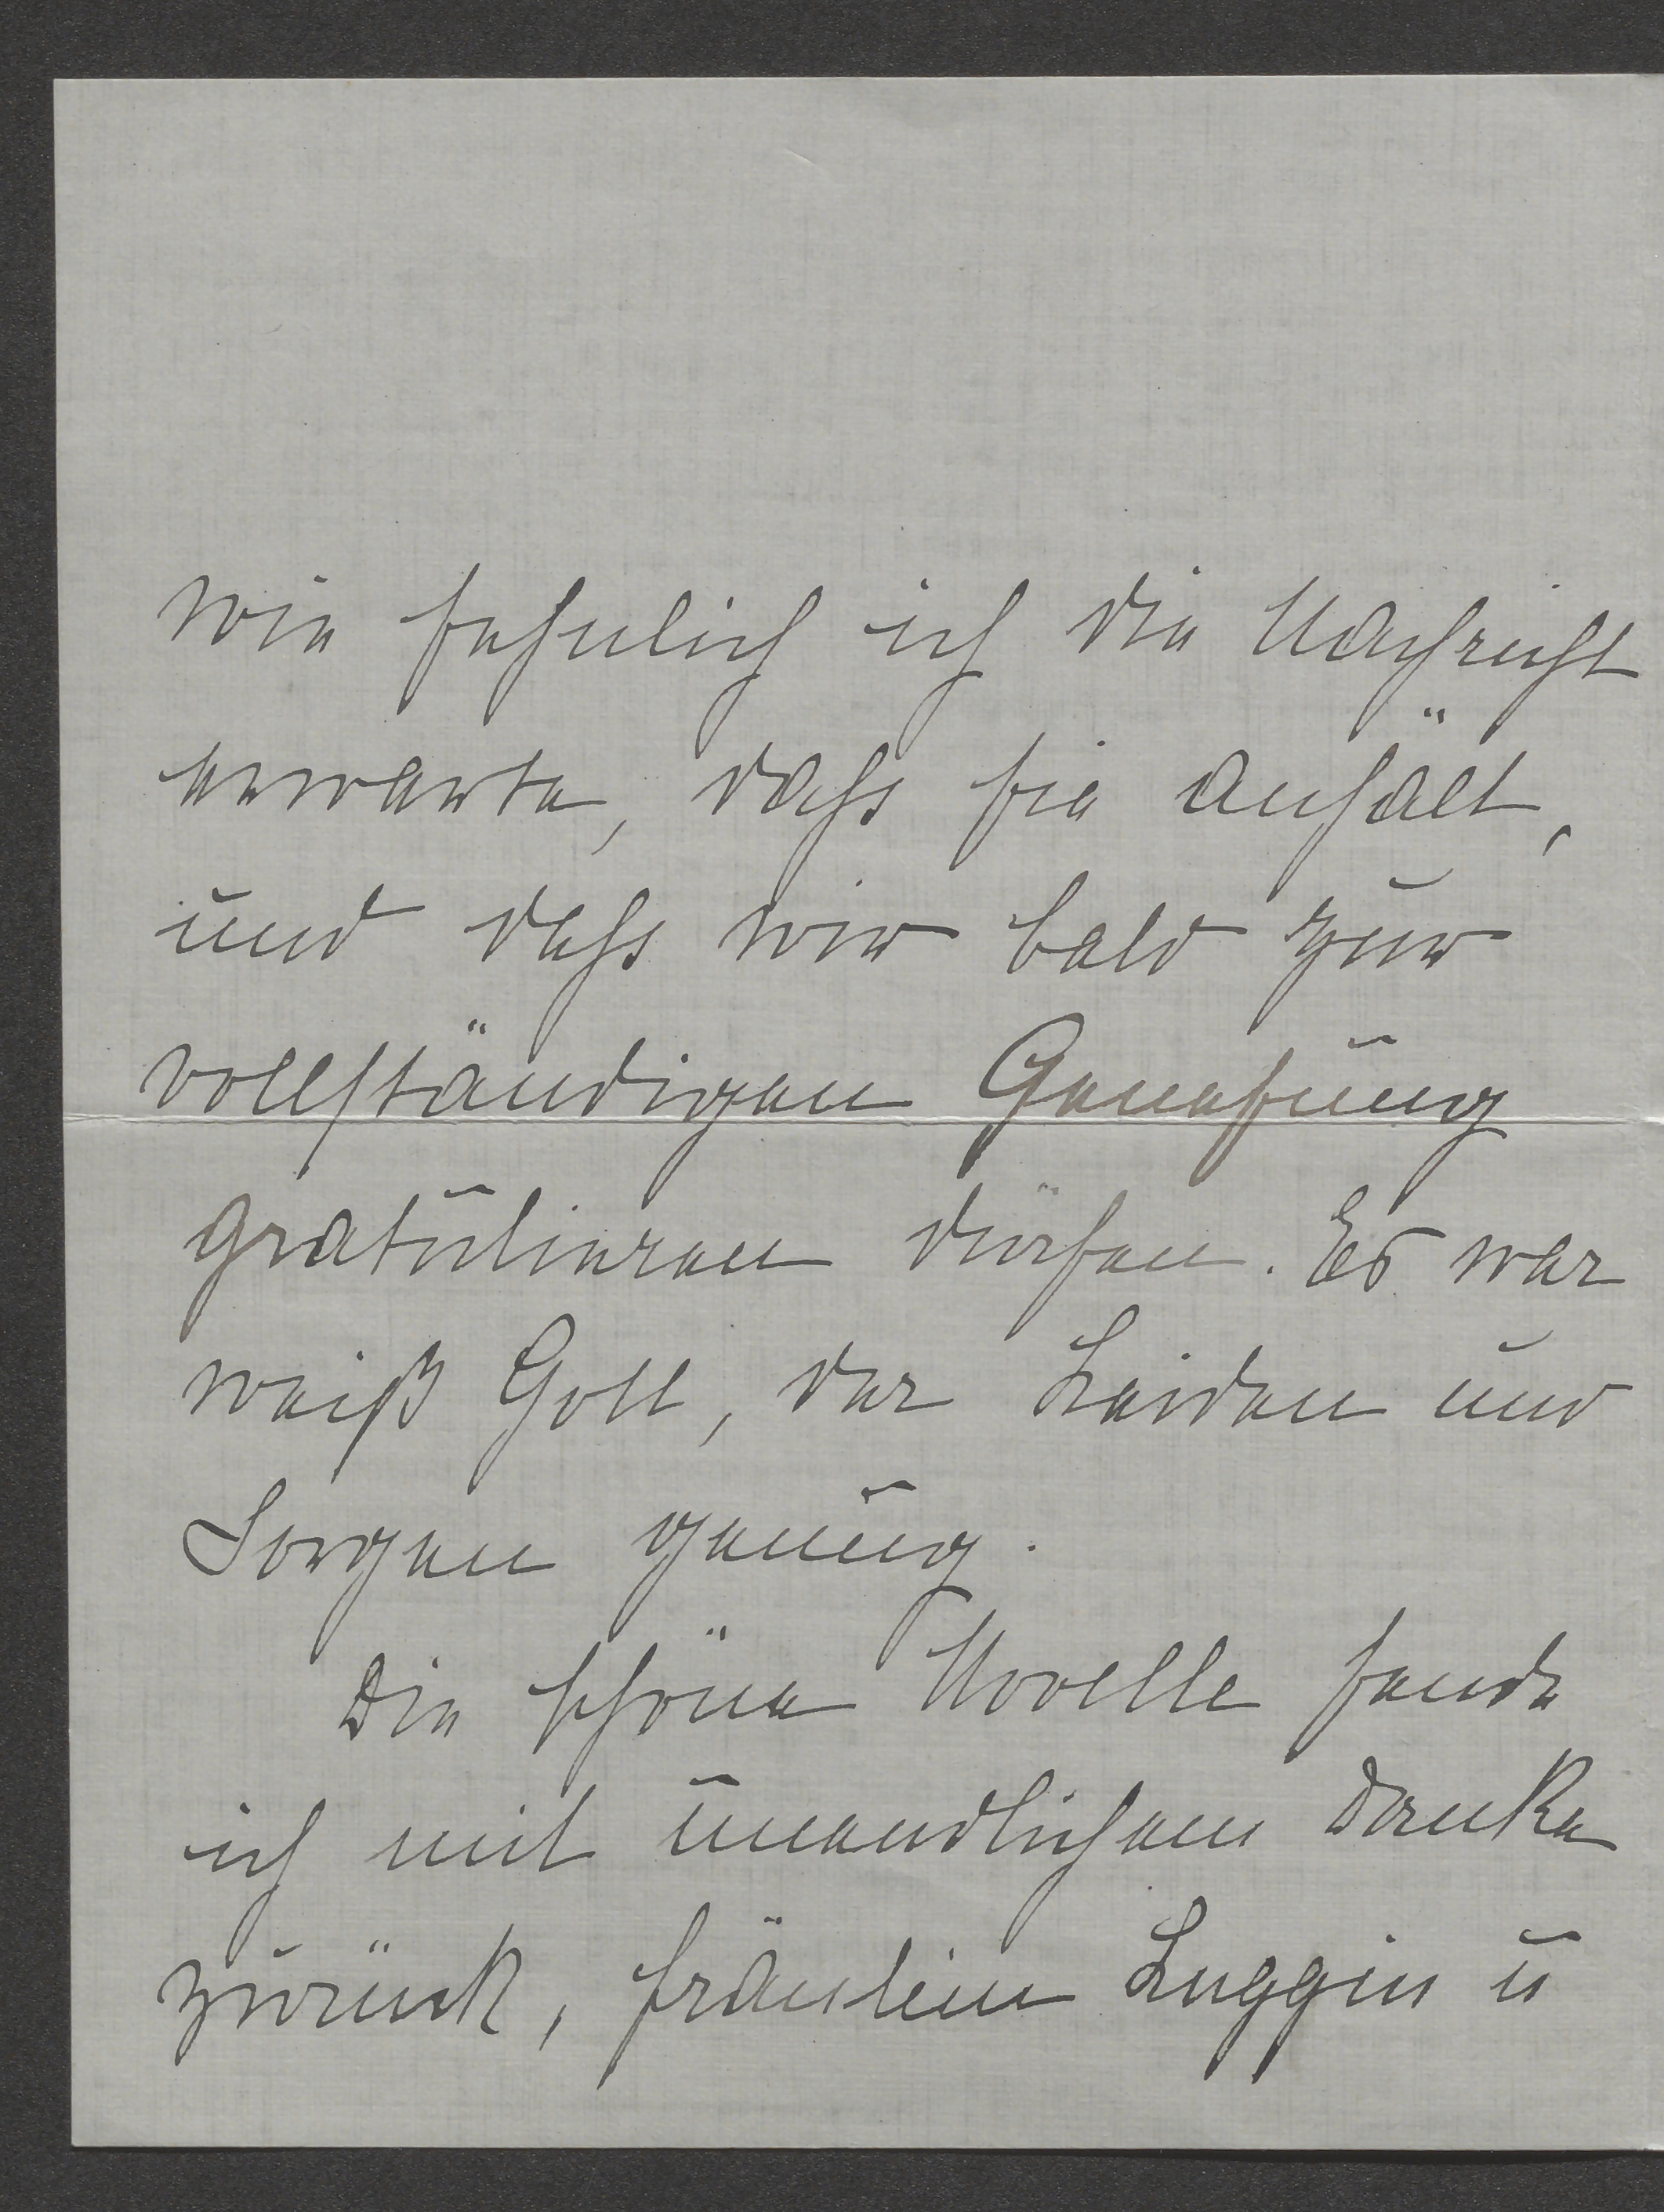 wie sehnlich ich die Nachricht
erwarte, dass sie anhält,
und dass wir bald zur
vollständigen Genesung
gratulieren dürfen. Es war
weiß Gott, der Leiden und
Sorgen genug.
Die schöne Novelle sende
ich mit unendlichem Danke
zurück, Fräulein Luggin u